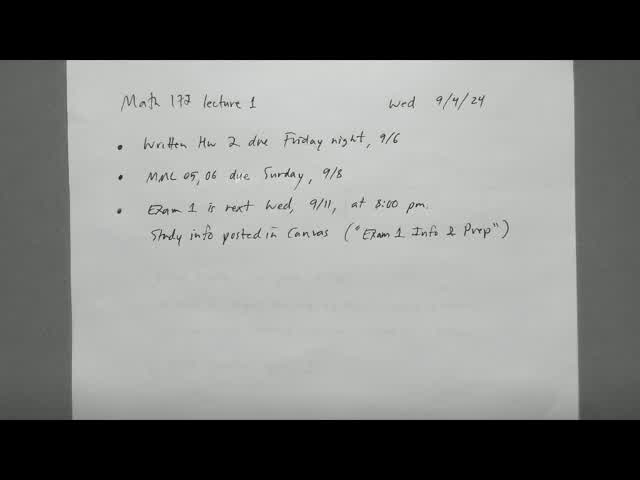 Math 172 lecture 1 Wed 9/4/24
• Written Hw 2 due Friday night, 9/6
• MML 05, 06 due Sunday, 9/8
• Exam 1 is next Wed, 9/11, at 8:00 pm.
Study info posted in Canvas ("Exam 1 Info & Prep")